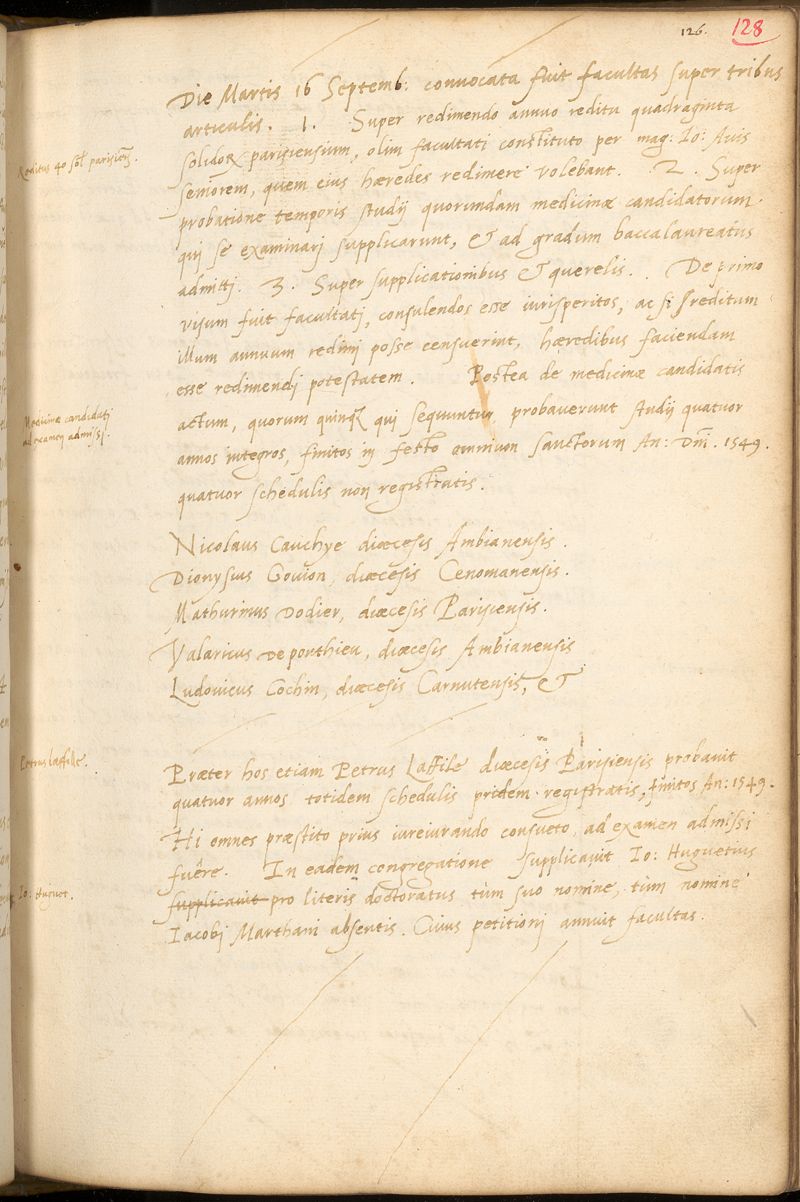 126. 128
Die Martis 16 Septemb: convocata fuit facultas super tribus
articulis. 1. Super redimendo annuo reditu quadraginta
Reditus 40 sol parisieñ.
solidoꝝ parisiensium, olim facultati constituto per mag: Io: Avis
semorem, quem eius hæredes redimere volebant. 2. Super
probatione temporis studij quorundam medicinæ candidatorum.
qui se examinarj supplicarunt, & ad gradum baccalaureatus
admittj. 3. Super supplicationibus & querelis. . De primo
visum fuit facultatj, consulendos esse iurisperitos, ac si reditum
illum annuum redimj posse censuerint, hæredibus faciendam
esse redimendj potestatem. Postea de medicinæ candidatis
Medicinæ candidatj
ad examen admissj.
actum, quorum quinqꝫ qui sequuntur probaverunt studij quatuor
annos integros, finitos in festo omnium sanctorum An: Dñi. 1549.
quatuor schedulis non registratis.
Nicolaus Cauchye diœcesis Ambianensis.
Dionysius Gouion, diœcesis Cenomanensis.
Mathurinus Dodier, diœcesis Parisiensis.
Valaricus De ponthieu, diœcesis Ambianensis
Ludovicus Cochin, diœcesis Carnutensis, &
Petrus laffille.
Præter hos etiam Petrus Laffile diœcesis Parisiensis probavit
quatuor annos totidem schedulis pridem registratis, finitos An: 1549.
Hi omnes præstito prius iureiurando consueto, ad examen admissi
fuêre. In eadem congregatione supplicavit Io: Huguetius
Io: Huguet.
supplicavit pro literis doctoratus tùm suo nomine, tùm nomine
Iacobj Marthani absentis. Cuius petitionj annuit facultas.